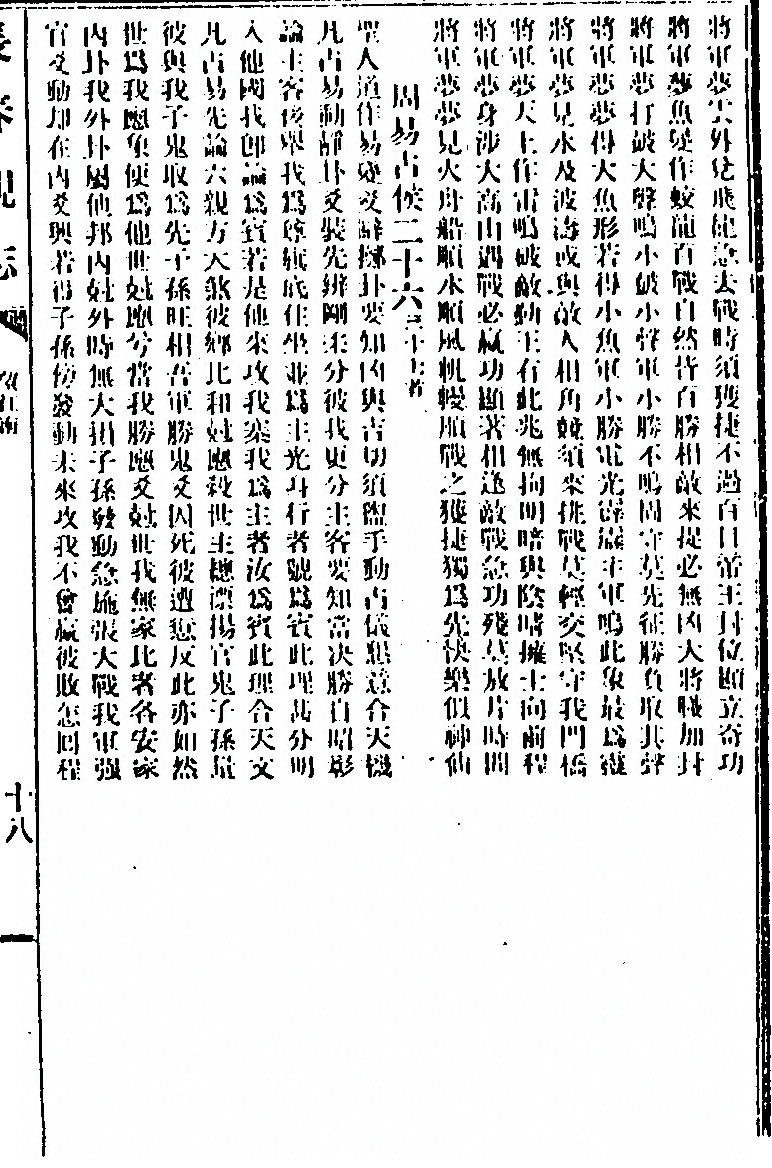 將軍夢雲外兌飛龍急去戰時須獲捷不過百日當主封位顯立奇功
將軍夢魚變作蛟龍百戰自然皆百勝相敵來捉必無凶大將職加封
將軍夢打破大聲鳴小破小聲軍小勝不鳴固守莫先征勝負取其聲
將軍夢夢得大魚形若得小魚軍小勝電光霹靂主軍鳴此象最為靈
將軍夢見水及波濤或與敵人相角競須來挑戰莫輕交堅守我門橋
將軍夢天上作雷鳴破敵動主有此兆無拘明暗與陰晴擁士向前程
將軍夢身涉大高山遇戰必贏功顯著相逢敵戰急功殘莫放片時閒
將軍夢夢見火舟船順水順風帆幔順戰之獲捷獨為先快樂似神仙
周易占候二十六 三十七首
聖人道作易變爻辭擲卦要知凶與吉切須盥手動占儀想意合天機
凡占易動靜卦爻裝先辨剛柔分彼我更分主客要知當决勝自昭彰
論主客後舉我為尊旗底住坐並為主先功行者號為賓此理甚分明
入他國我即論為賓若是他來攻我寨我為主者汝為賓此理合天文
凡占易先論六親方大煞彼鄉比和尅應殺世主摠漂揚官鬼子孫量
彼與我子鬼取為先子孫旺相吾軍勝鬼爻囚死彼遭愆反此亦如然
世為我應象便為他世尅應兮當我勝應爻尅世我無家比者各安家
內卦我外卦屬他邦內尅外時無大損子孫發動急施張大戰我軍强
官爻動却在內爻興若得子孫傍發動未來攻我不曾贏彼敗怎回程
十八